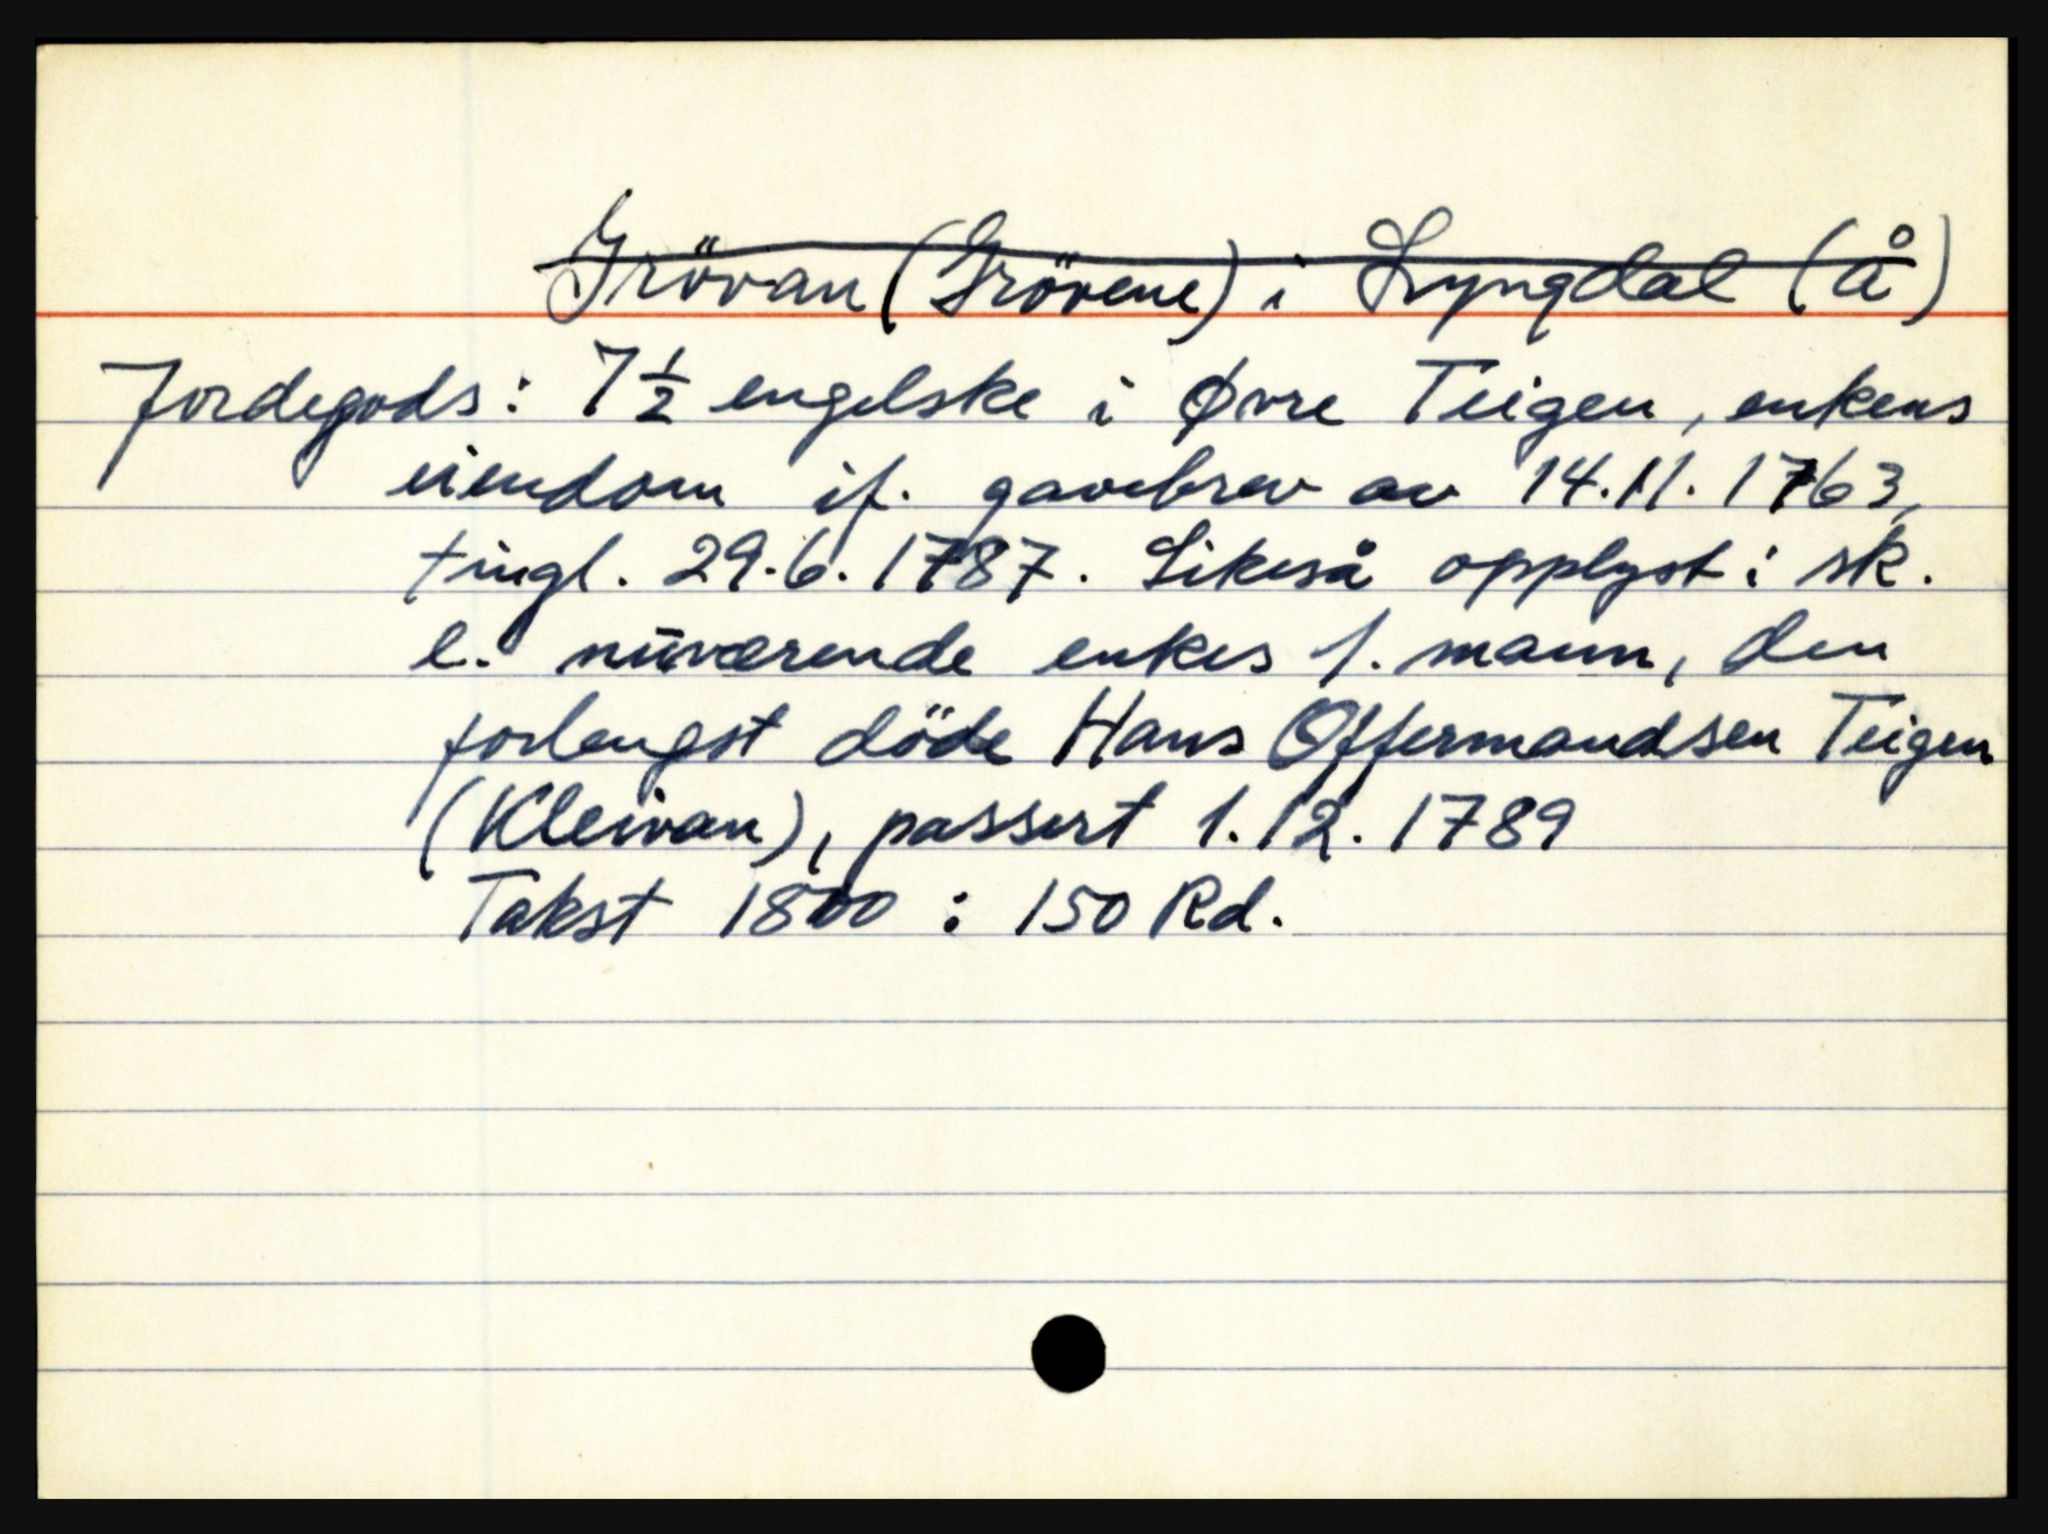 Grövan (Grövene) i Lyngdal (Å)
Jordegods: 7 1/2 engelske i Øvre Teigen, enkens
eiendom if. gavebrev av 14.11.1763,
tingl. 29.6.1787. Likeså opplyst i sk.
e. nŭværende enkes 1. mann, den
forlengst döde Hans Offermandsen Teigen
(Kleivan), passert 1.12.1789
Takst 1800 : 150 Rd.